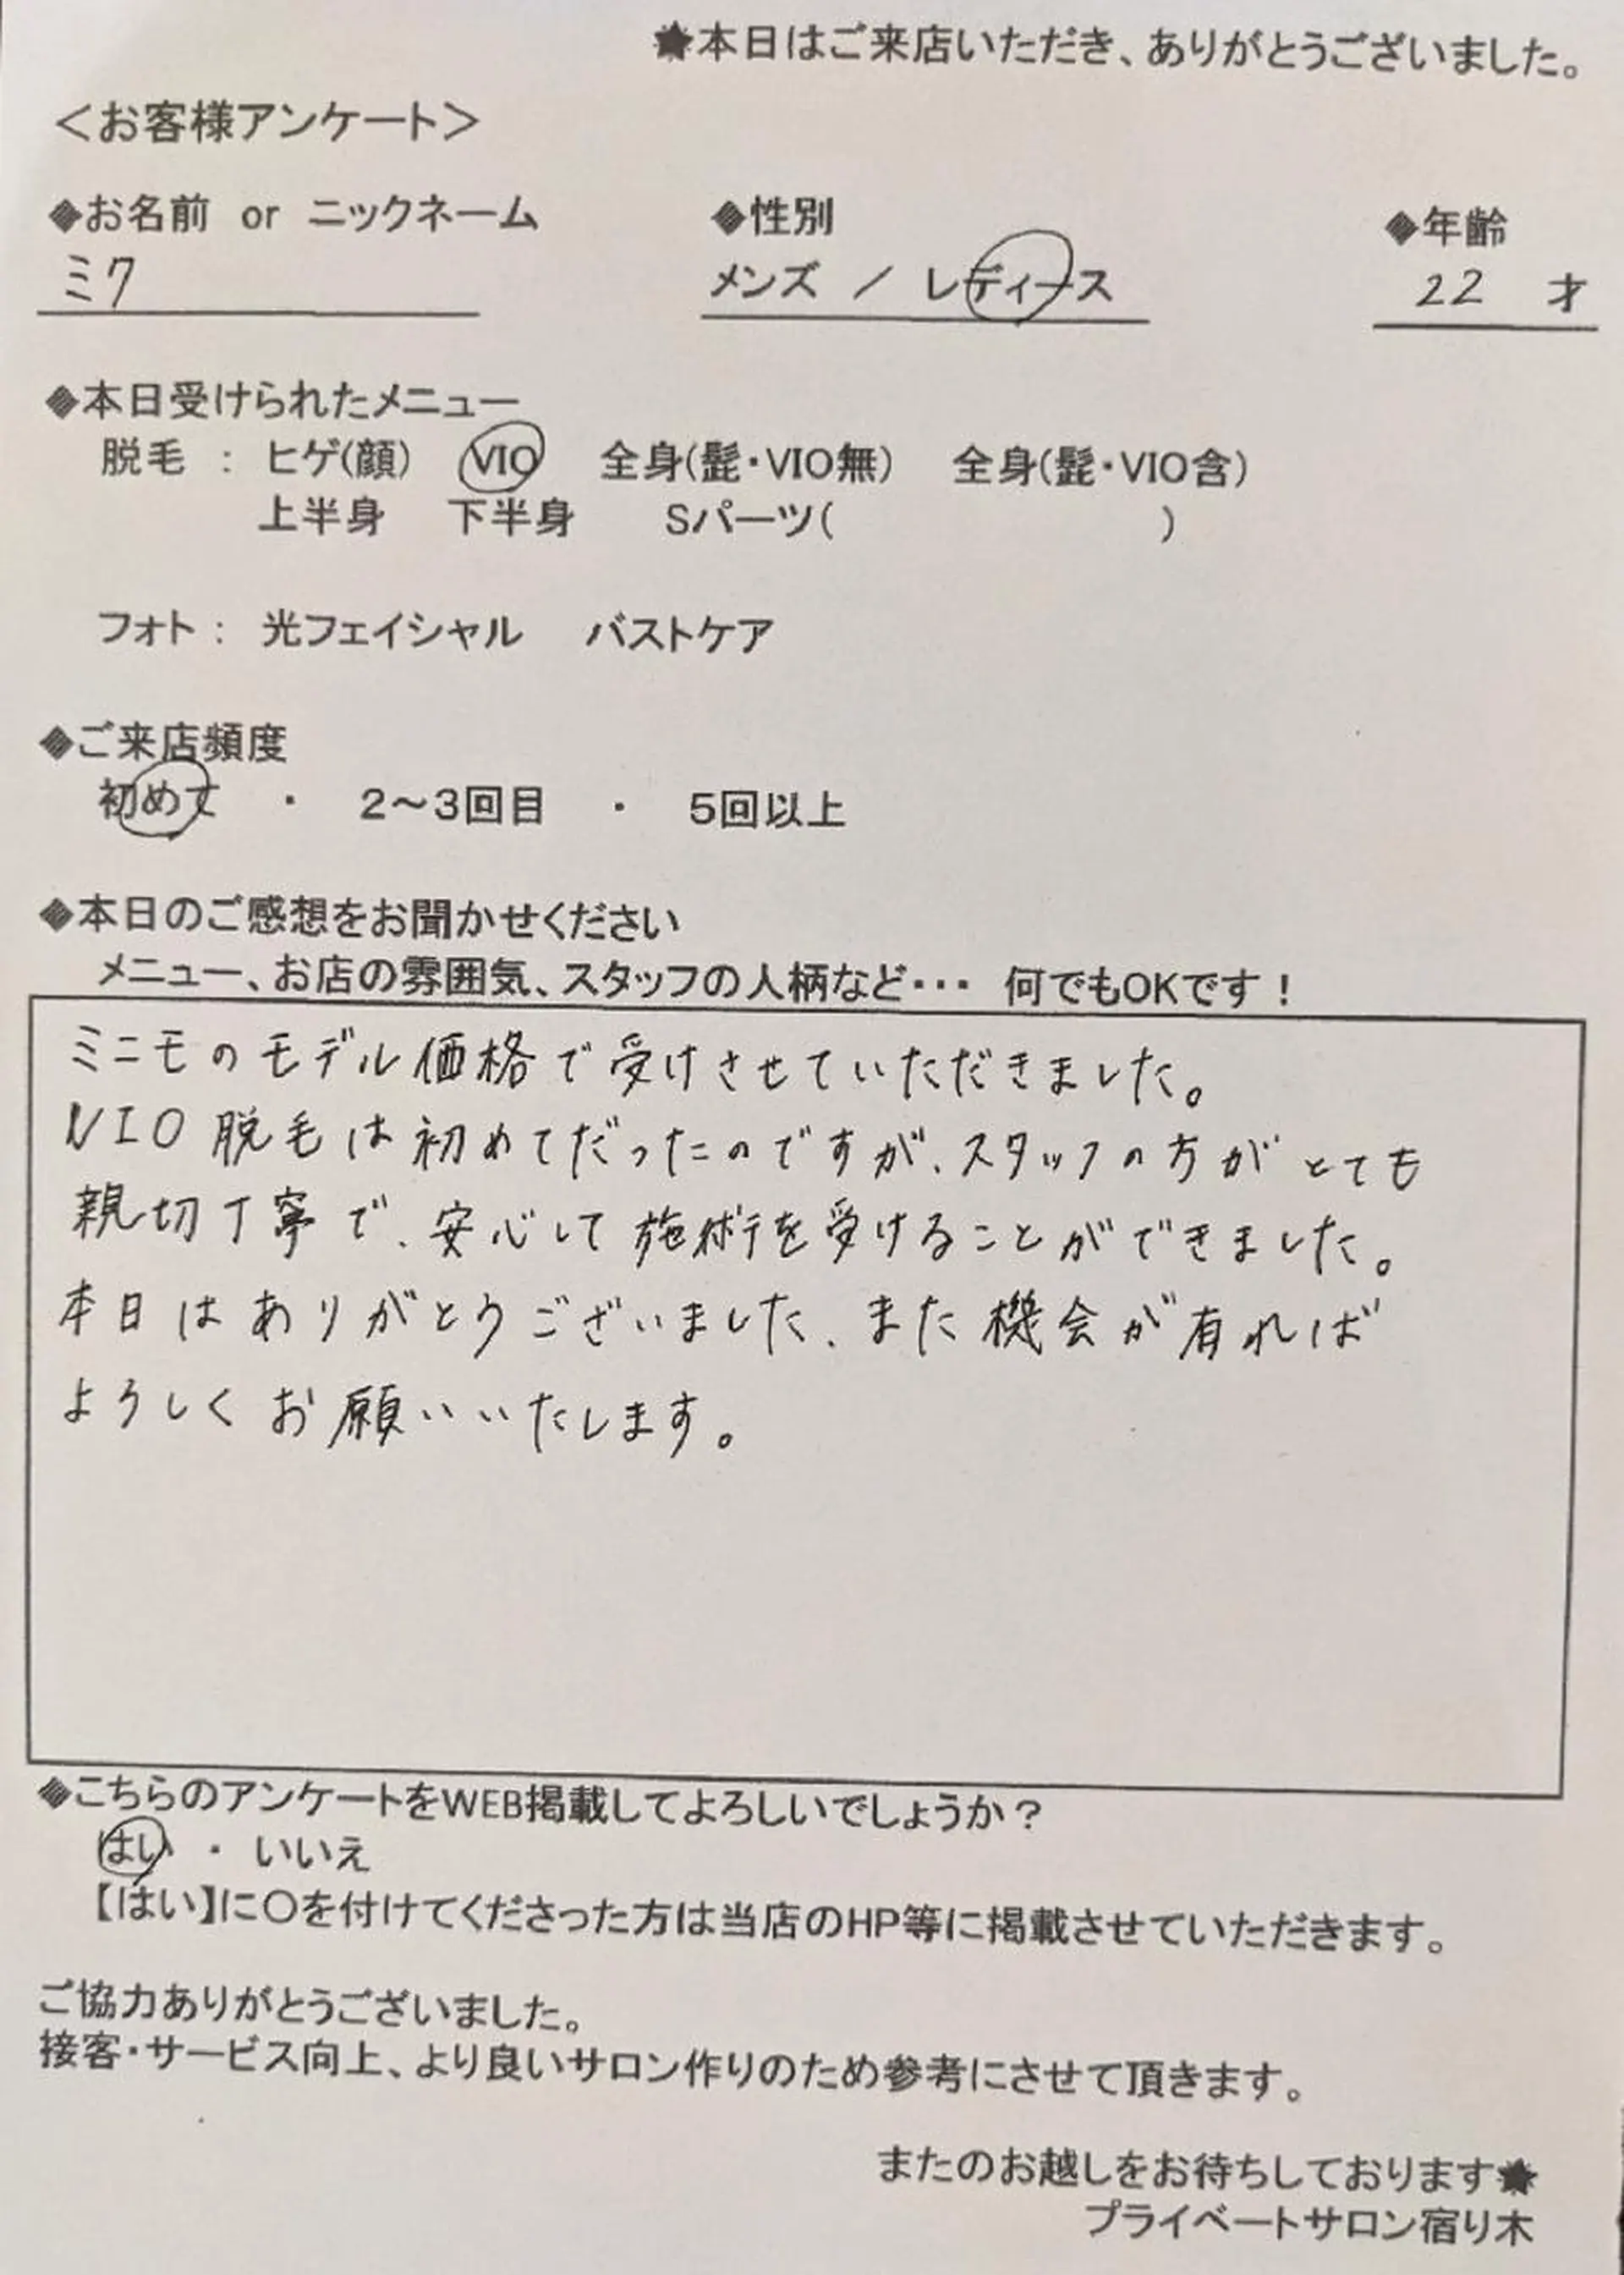 ★本日はご来店いただき、ありがとうございました。
＜お客様アンケート＞
◆お名前 or ニックネーム ◆性別 ◆年齢
ミク メンズ ／ レディース 22 才
◆本日受けられたメニュー
脱毛 ： ヒゲ(顔) VIO 全身(髭・VIO無) 全身(髭・VIO含)
上半身 下半身 Sパーツ( )
フォト ： 光フェイシャル バストケア
◆ご来店頻度
初めて ・ 2～3回目 ・ 5回以上
◆本日のご感想をお聞かせください
メニュー、お店の雰囲気、スタッフの人柄など・・・ 何でもOKです！
ミニモのモデル価格で受けさせていただきました。
VIO脱毛は初めてだったのですが、スタッフの方がとても
親切丁寧で、安心して施術を受けることができました。
本日はありがとうございました、また機会が有れば
よろしくお願いいたします。
◆こちらのアンケートをWEB掲載してよろしいでしょうか？
はい ・ いいえ
【はい】に〇を付けてくださった方は当店のHP等に掲載させていただきます。
ご協力ありがとうございました。
接客・サービス向上、より良いサロン作りのため参考にさせて頂きます。
またのお越しをお待ちしております★
プライベートサロン宿り木